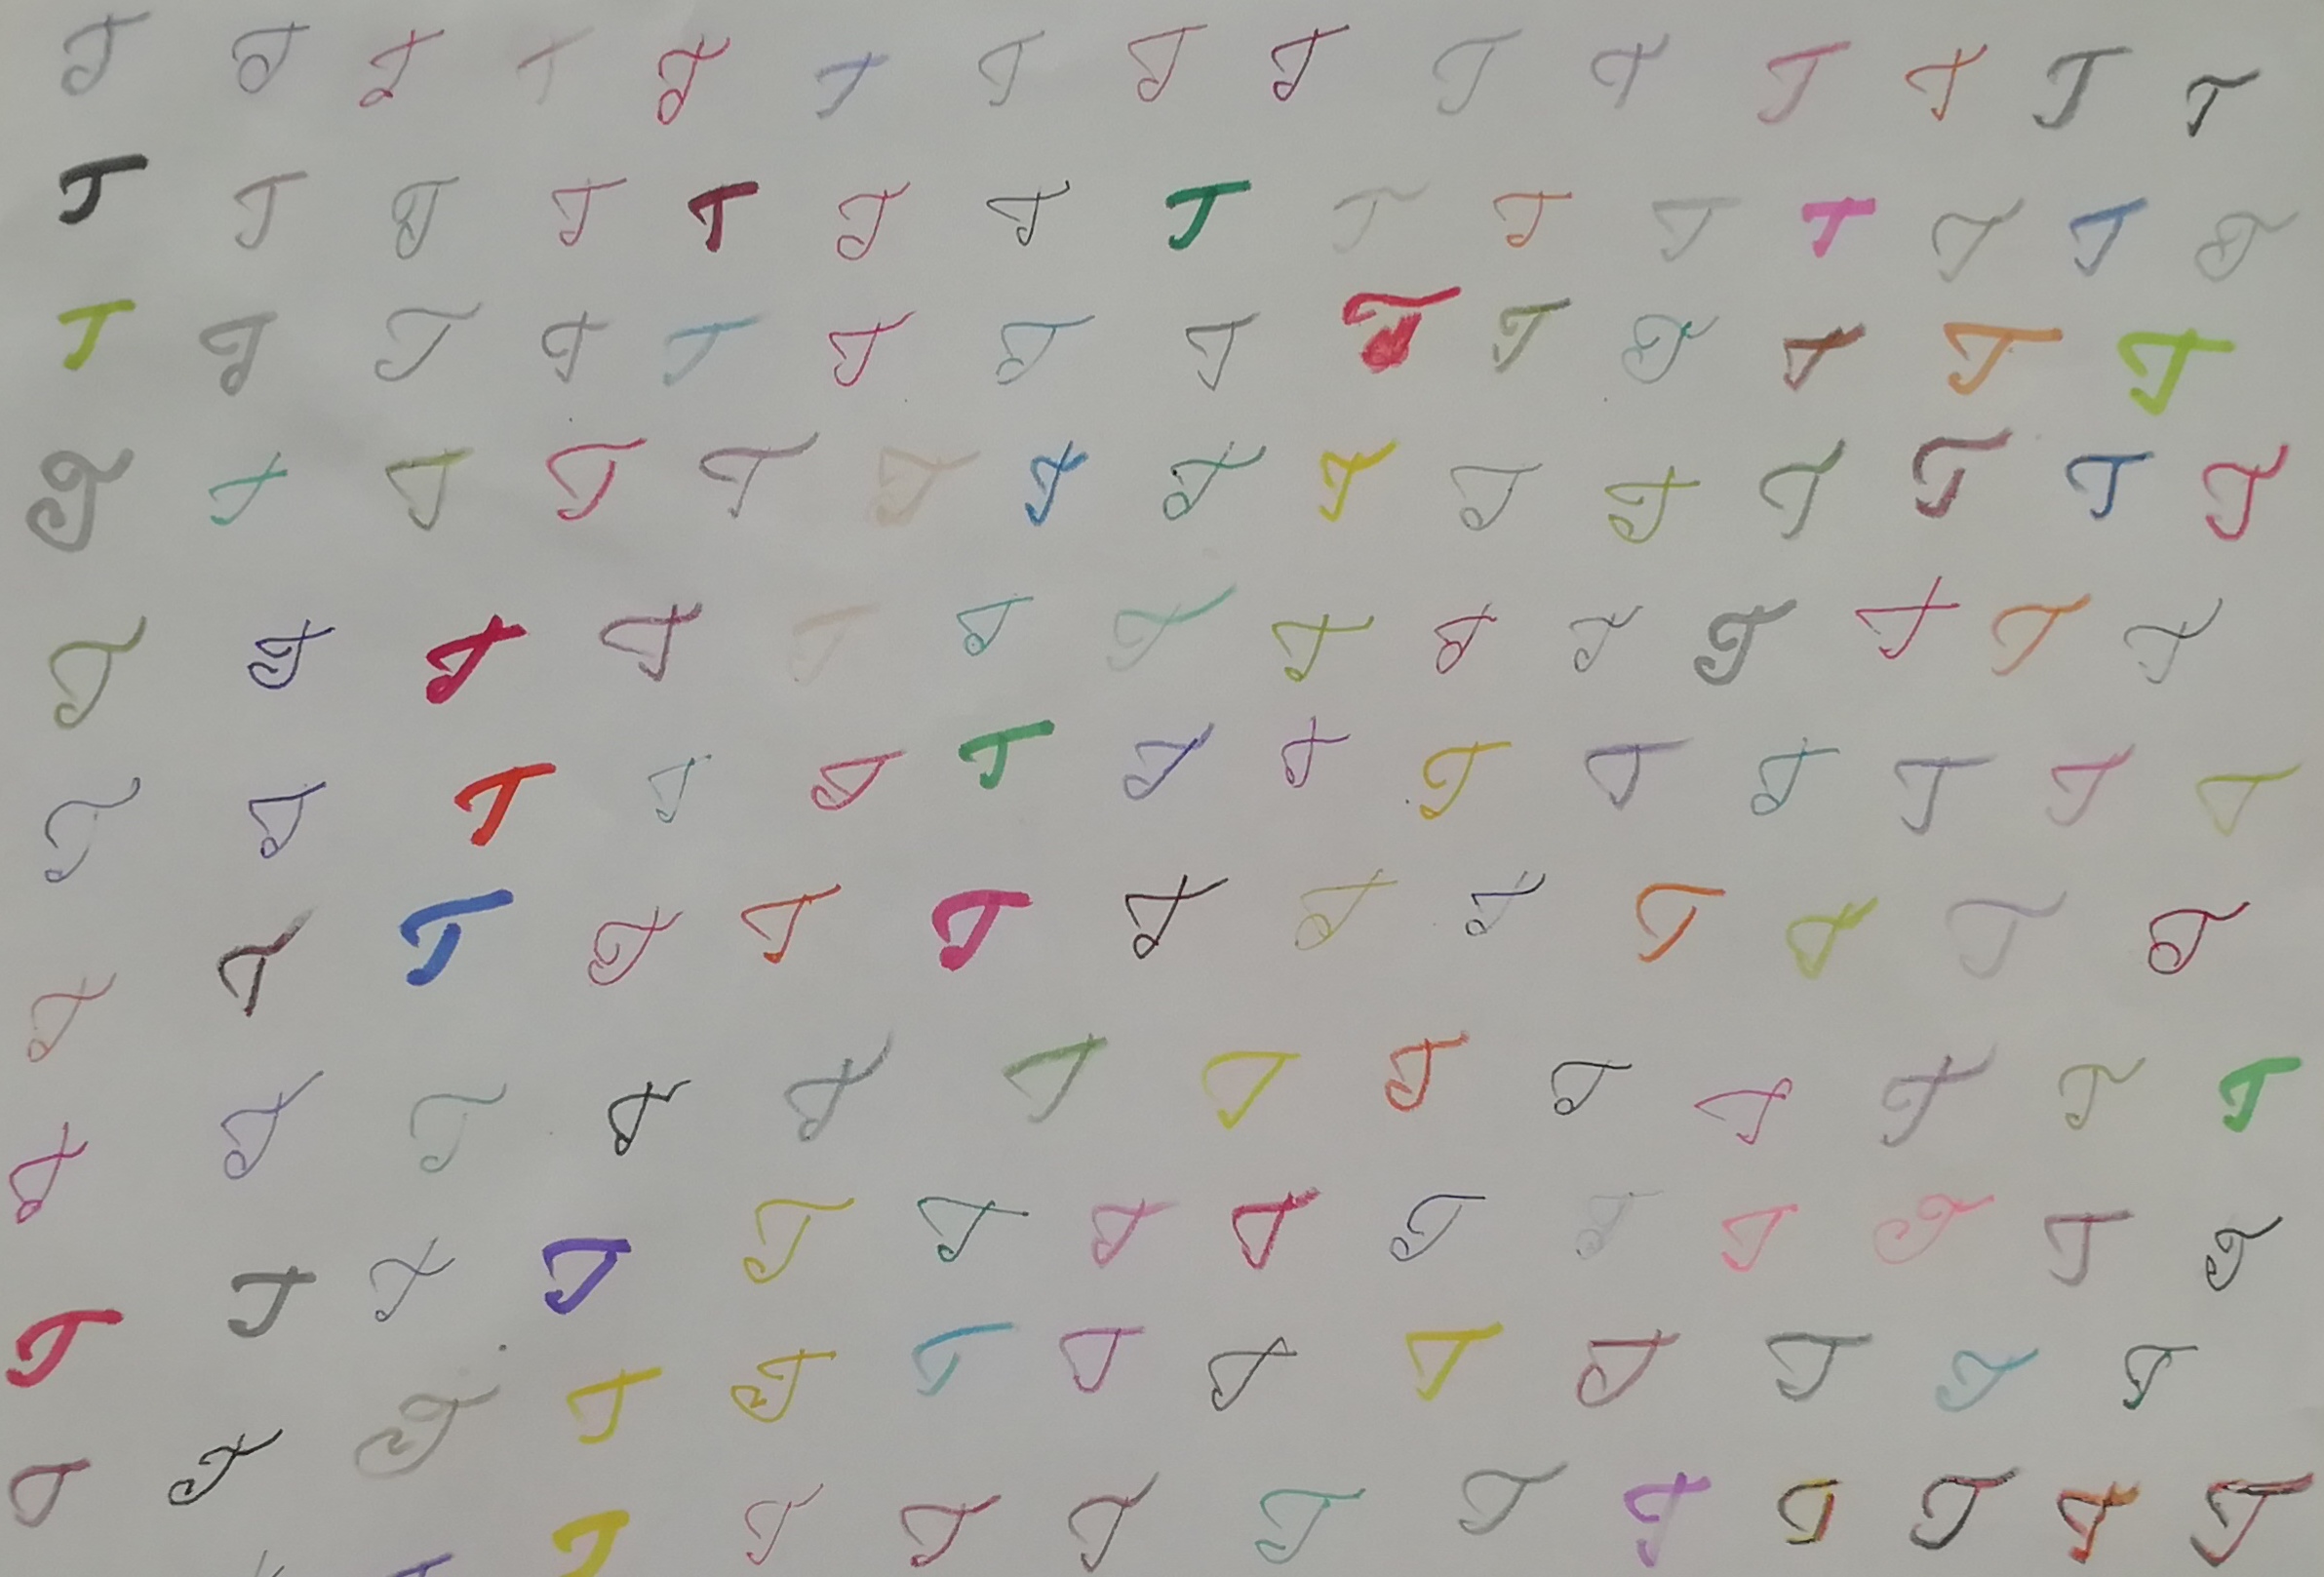 T T T T T T T T T T T T T T T
T T T T T T T T T T T T T T T
T T T T T T T T T T T T T T
T T T T T T T T T T T T T T T
T T T T T T T T T T T T T T
T T T T T T T T T T T T T T
T T T T T T T T T T T T T
T T T T T T T T T T T T T
T T T T T T T T T T T T T T
T T T T T T T T T T T T T
T T T T T T T T T T T